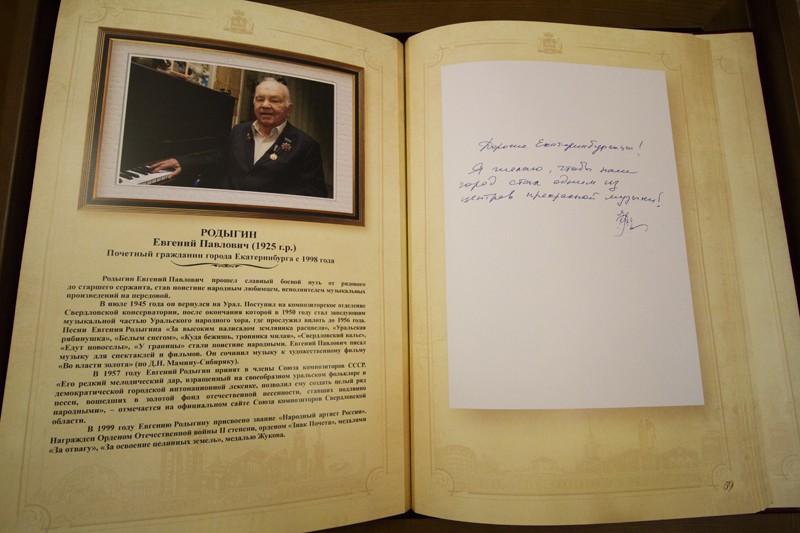 РОДЫГИН
Евгений Павлович (1925 г.р.)
Почетный гражданин города Екатеринбурга с 1998 года
Родыгин Евгений Павлович прошел славный боевой путь от рядового
до старшего сержанта, став поистине народным любимцем, исполнителем музыкальных
произведений на передовой.
В июле 1945 года он вернулся на Урал. Поступил на композиторское отделение
Свердловской консерватории, после окончания которой в 1950 году стал заведующим
музыкальной частью Уральского народного хора, где прослужил вплоть до 1956 года.
Песни Евгения Родыгина «За высоким палисадом земляника расцвела», «Уральская
рябинушка», «Белым снегом», «Куда бежишь, тропинка милая», «Свердловский вальс»,
«Едут новоселы», «У границы» стали поистине народными. Евгений Павлович писал
музыку для спектаклей и фильмов. Он сочинил музыку к художественному фильму
«Во власти золота» (по Д.Н. Мамину-Сибиряку).
В 1957 году Евгений Родыгин принят в члены Союза композиторов СССР.
«Его редкий мелодический дар, взращенный на своеобразном уральском фольклоре и
демократической городской интонационной лексике, позволил ему создать целый ряд
песен, вошедших в золотой фонд отечественной песенности, ставших подлинно
народными», – отмечается на официальном сайте Союза композиторов Свердловской
области.
В 1999 году Евгению Родыгину присвоено звание «Народный артист России».
Награжден Орденом Отечественной войны II степени, орденом «Знак Почета», медалями
«За отвагу», «За освоение целинных земель», медалью Жукова.
Дорогие Екатеринбуржцы!
Я желаю, чтобы наш
город стал одним из
центров прекрасной музыки!